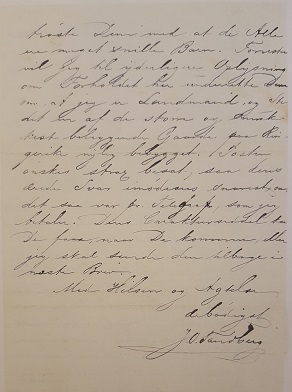 trøste Dem med at de Alle
ere meget snille Børn. Forresten
vil jeg til yderligere Oplysning
om Forholdet her underrette Dem
om, at jeg er Landmand, og at
det er af de større og smukt
beliggende Gaarde paa Ringerike
nylig bebygget. Posten
ønskes strax besat, saa deres
Svar imødesees snarest, om
det saa var pr. Telegraf, som jeg
betaler. Deres
De faa, naar De kommer, eller
jeg skal sende den tilbage i
næste Brev.
Med Hilsen og Agtelse
ærbødigst
J.O. Sandberg